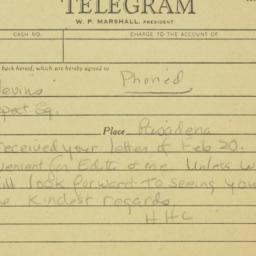 TELEGRAM
W. P. MARSHALL, PRESIDENT
CASH NO.
CHARGE TO THE ACCOUNT OF
back hereof, which are hereby agreed to
Phoned
levins
pect Sq.
Place Pasadena
received your letter of Feb 20.
venient for Edith & me. Unless w
ill look forward to seeing you
e. Kindest regards
H H C